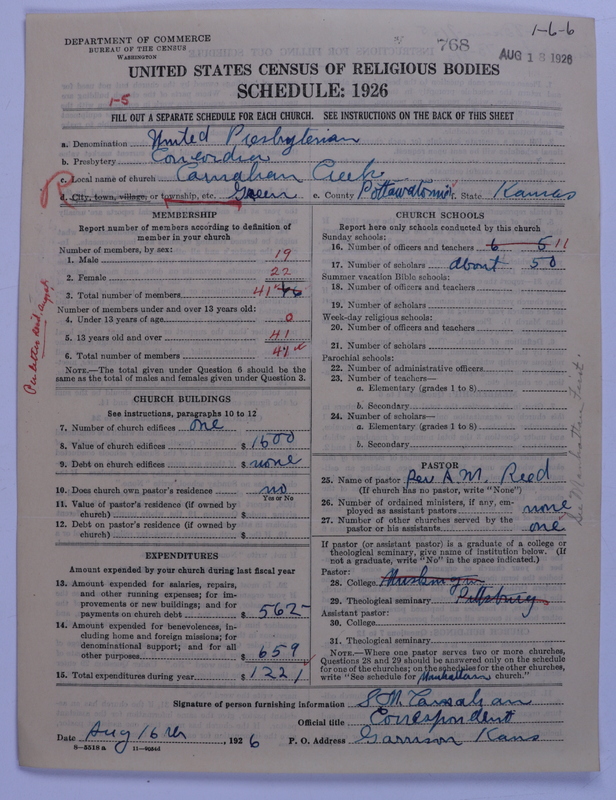 1-6-6
DEPARTMENT OF COMMERCE
BUREAU OF THE CENSUS
WASHINGTON
768
AUG 18 1926
UNITED STATES CENSUS OF RELIGIOUS BODIES
SCHEDULE: 1926
1-5
FILL OUT A SEPARATE SCHEDULE FOR EACH CHURCH. SEE INSTRUCTIONS ON THE BACK OF THIS SHEET
a. Denomination United Presbyterian
b. Presbytery Concordia
c. Local name of church Carnahan Creek
R
d. City, town, village, or township, etc. Green e. County Pottawatomie f. State Kansas
MEMBERSHIP
Report number of members according to definition of
member in your church
Number of members, by sex:
1. Male 19
2. Female 22
3. Total number of members 41
Number of members under and over 13 years old:
4. Under 13 years of age 0
5. 13 years old and over 41
6. Total number of members 41
NOTE.—The total given under Question 6 should be the
same as the total of males and females given under Question 3.
CHURCH BUILDINGS
See instructions, paragraphs 10 to 12
7. Number of church edifices one
8. Value of church edifices $ 1500
9. Debt on church edifices $ none
10. Does church own pastor's residence no
Yes or No
11. Value of pastor's residence (if owned by
church) $
12. Debt on pastor's residence (if owned by
church) $
EXPENDITURES
Amount expended by your church during last fiscal year
13. Amount expended for salaries, repairs,
and other running expenses; for im-
provements or new buildings; and for
payments on church debt $ 562
14. Amount expended for benevolences, in-
cluding home and foreign missions; for
denominational support; and for all
other purposes $ 659
15. Total expenditures during year $ 1221
CHURCH SCHOOLS
Report here only schools conducted by this church
Sunday schools:
16. Number of officers and teachers 6 5 11
17. Number of scholars about 50
Summer vacation Bible schools:
18. Number of officers and teachers
19. Number of scholars
Week-day religious schools:
20. Number of officers and teachers
21. Number of scholars
Parochial schools:
22. Number of administrative officers
23. Number of teachers—
a. Elementary (grades 1 to 8)
b. Secondary
24. Number of scholars—
a. Elementary (grades 1 to 8)
b. Secondary
See Manhattan First.
PASTOR
25. Name of pastor Rev A. M. Reed
(If church has no pastor, write "None")
26. Number of ordained ministers, if any, em-
ployed as assistant pastors none
27. Number of other churches served by the
pastor or his assistants one
If pastor (or assistant pastor) is a graduate of a college or
theological seminary, give name of institution below. (If
not a graduate, write "No" in the space indicated.)
Pastor:
28. College Muskingum
29. Theological seminary Pittsburg
Assistant pastor:
30. College
31. Theological seminary
NOTE.—Where one pastor serves two or more churches,
Questions 28 and 29 should be answered only on the schedule
for one of the churches; on the schedules for the other churches,
write "See schedule for Manhattan church."
Signature of person furnishing information S M Carnahan
Official title Correspondent
Date Aug 16th, 1926 P. O. Address Garrison Kans
8-5518 a